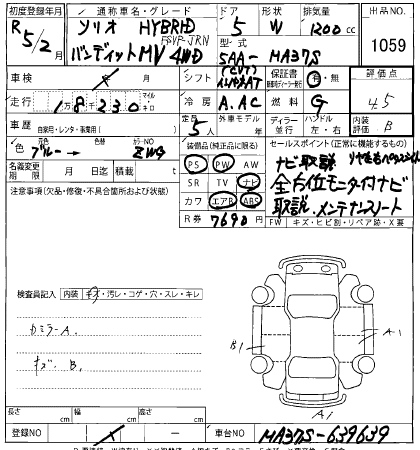 初度登録年月 通称車名・グレード ドア 形状 排気量 出品NO
R 5/2月 ソリオ HYBRID 5 W 1200cc 1059
バンディット MV 4WD 型・式 5AA-MA37S
車検 月 シフト インパネAT 保証書 有・無 評価点
走行 1万8230 マイル キロ 冷房 A.AC 燃料 G 4.5
車歴 自家用・レンタ・事業用( ) 定員 5人 外車モデル 年 ディーラー 並行 ハンドル 左・右 内装評価 B
色 元色 ブルー→ カラーNO ZWG 装備品(純正品に限る) セールスポイント(正常に機能するもの)
名義変更期限 月 日迄 積載 t PS PW AW ナビ取説
注意事項(欠品・修復・不具合箇所および状態) SR TV ナビ 全方位モニター付ナビ
カワ エアB ABS 取説 メンテナンスノート
R券 7690 円 FW キズ・ヒビ割・リペア跡・X要
検査員記入 内装 キズ・汚レ・コゲ・穴・スレ・キレ
カミラーA.
キズ B.
B1 A1
A1
長さ cm 幅 cm 高さ cm
登録NO 車台NO MA37S-639639